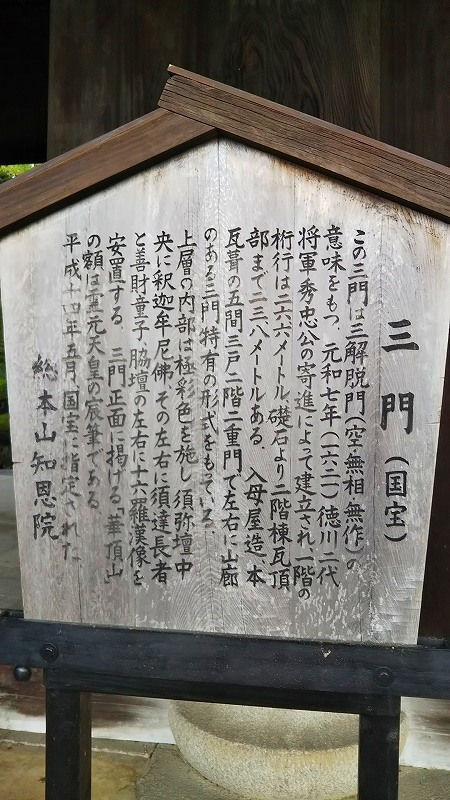 三門（国宝）
この三門は三解脱門（空・無相・無作）の
意味をもつ。元和七年（一六二一）徳川二代
将軍秀忠公の寄進によって建立され、一階の
桁行は二六・六メートル、礎石より二階棟瓦頂
部まで二三・八メートルある。入母屋造、本
瓦葺の五間三戸二階二重門で左右に山廊
のある三門特有の形式をもっている。
上層の内部は極彩色を施し、須弥壇中
央に釈迦牟尼佛、その左右に須達長者
と善財童子、脇壇の左右に十六羅漢像を
安置する。三門正面に掲げる「華頂山」
の額は霊元天皇の宸筆である。
平成十四年五月、国宝に指定された。
総本山知恩院